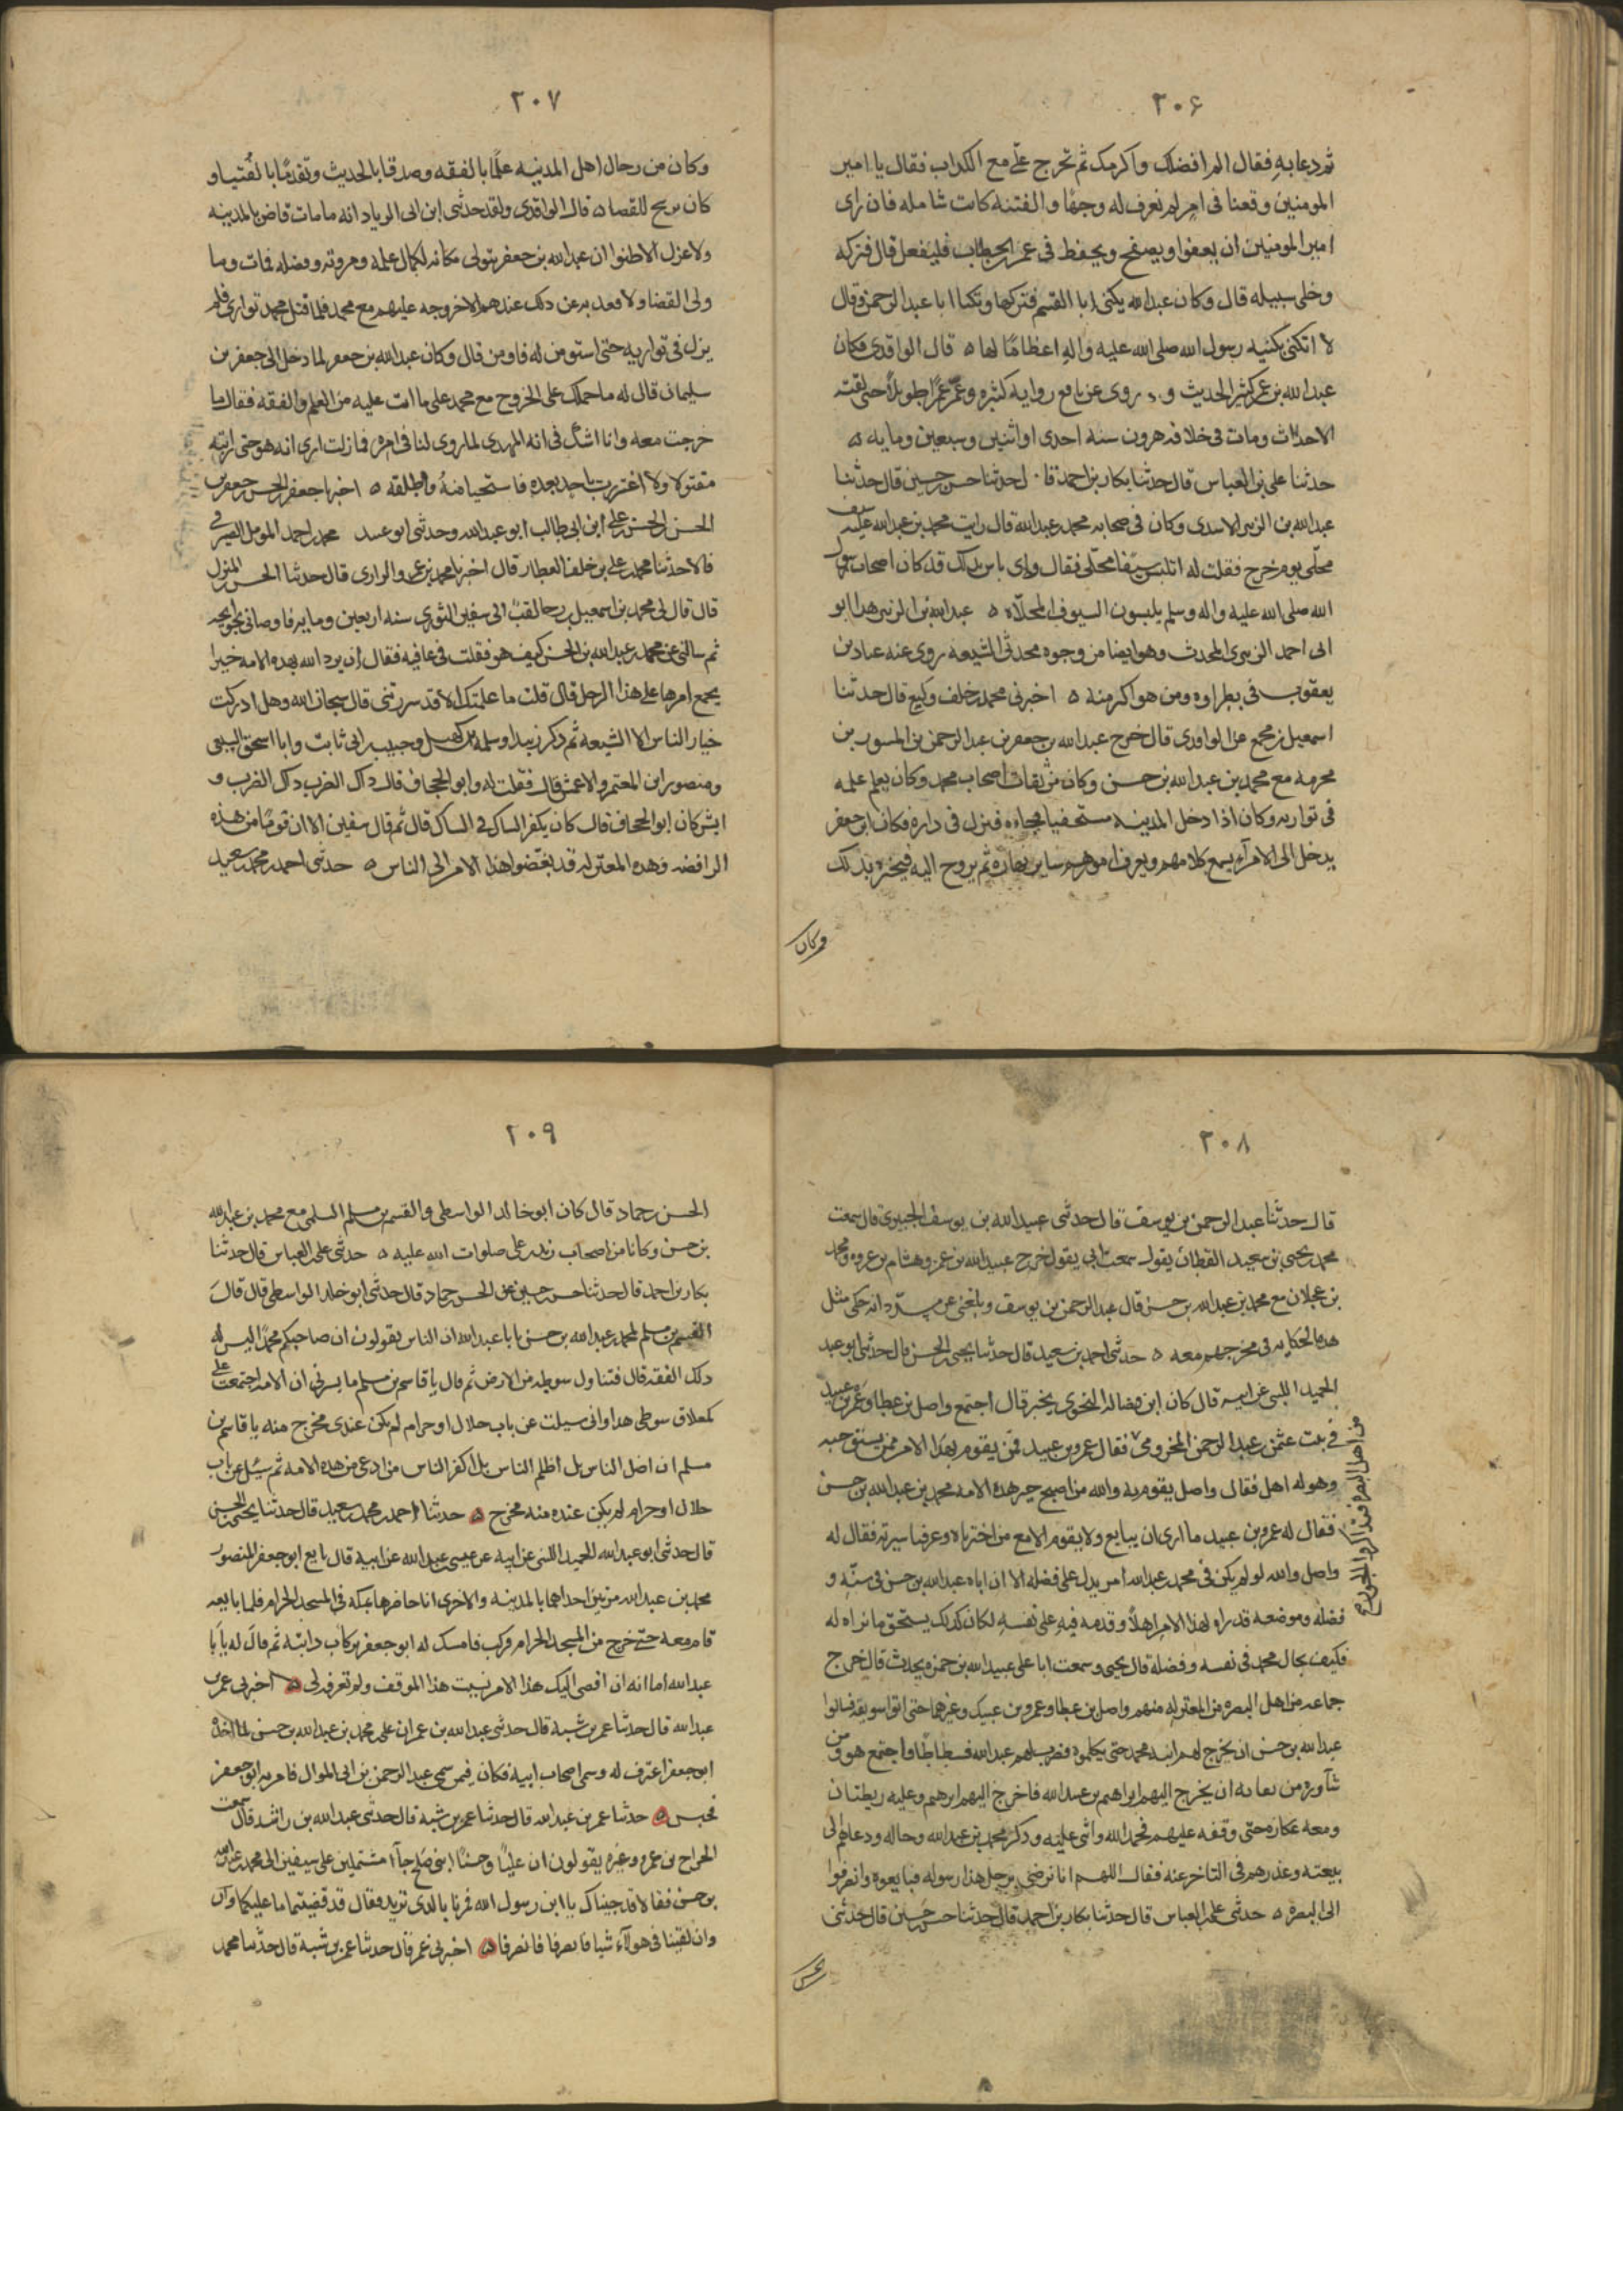 ٢٠۶
ثم دعا به فقال الم افضلك واكرمك ثم تخرج علي مع الكداب فقال يا امير
المومنين وقعنا فى امر لم نعرف له وجها والفتنه كانت شامله فان راى
امير المومنين ان يعفوا ويصفح ويحفظ فى عمر بن الخطاب فليفعل قال فتركه
وخلى سبيله قال وكان عبد الله يكنى ابا القسم فتركها وتكنا ابا عبد الرحمن وقال
لا اتكنى بكنيه رسول الله صلى الله عليه واله اعظاما لها ه قال الواقدى فكان
عبد الله بن عمر كثير الحديث و روى عن نافع رواية كثيره وعمّر عمرًا طويلًا حتى لقته
الاحداث ومات فى خلافه هرون سنه احدى او اثنين وسبعين ومايه ه
حدثنا على بن العباس قال حدثنا بكار بن احمد قا ل حدثنا حسن بن حسين قال حدثنا
عبد الله بن الزبير الاسدى وكان فى صحابه محمد بن عبد الله قال رايت محمد بن عبد الله عليه سيف
محلّى يوم خرج فقلت له اتلبس سيفا محلّى فقال واى باس بذلك قد كان اصحاب رسول
الله صلى الله عليه واله وسلم يلبسون السيوف المحلّاه ه عبد الله بن الزبير هدا ابو
ابى احمد الزبيرى المحدث وهو ايضا من وجوه محدثى الشيعه روى عنه عباد بن
يعقوب فى نطراوه ومن هو اكبر منه ه اخبرنى محمد بن خلف وكيع قال حدثنا
اسمعيل بن مجمع عن الواقدى قال خرج عبد الله بن جعفر بن عبد الرحمن بن المسور بن
مخرمه مع محمد بن عبد الله بن حسن وكان من ثقات اصحاب محمد وكان يعلم علمه
فى تواريه وكان اذا دخل المدينه مستخفيا فجاءه فنزل فى داره فكان ابن جعفر
يدخل الى الامرآء يسمع كلامهم ويعرف امورهم ساير نهاره ثم يروح اليه فيخبره بذلك
وكان
٢٠٧
وكان من رجال اهل المدينه علمًا بالفقه وصدقا بالحديث وتقدمًا بالفتيا و
كان يرشح للقضا ه قال الواقدى ولقد حدثنى ابن ابى الزياد انه ما مات قاض بالمدينه
ولا عزل الا طنوا ان عبد الله بن جعفر يتولى مكانه لكمال علمه ومروته وفضله فمات وما
ولى القضا ولا قعد به عن دلك عندهم الا خروجه عليهم مع محمد فلما قتل محمد توارى فلم
يزل فى تواريه حتى استومن له فاومن قال وكان عبد الله بن جعفر لما دخل الى جعفر بن
سليمان قال له ما حملك على الخروج مع محمد على ما انت عليه من العلم والفقه فقال ما
خرجت معه وانا اشكّ فى انه المهدى لما روى لنا فى امره فما زلت ارى انه هو حتى رايته
مقتولا ولا اغتررت باحد بعده فاستحيا منه واطلقه ه اخبرنا جعفر بن الحسن بن جعفر بن
الحسن بن الحسن بن على ابن ابى طالب ابو عبد الله وحدثنى ابو عبيد محمد بن احمد المومل الصيرفى
قالا حدثنا محمد بن على بن خلف العطار قال اخبرنا محمد بن عمرو الرازى قال حدثنا الحسن المنزل
قال قال لى محمد بن اسمعيل بن رجا لقيت ابى سفين الثورى سنه اربعين ومايه فاوصانى بحوايجه
ثم سالنى عن محمد بن عبد الله بن الحسن كيف هو فقلت فى عافيه فقال ان يرد الله بهده الامه خيرا
يجمع امرها على هذا الرجل قال قلت ما علمتك الا قد سررتنى قال سبحان الله وهل ادركت
خيار الناس الا الشيعه ثم دكر زبيدا وسلمه بن كهيل وحبيب بن ابى ثابت وابا اسحق السبيعى
ومنصور ابن المعتمر والاعمش قال فقلت له وابو الجحاف قال داك الضرب داك الضرب و
ايش كان ابو الجحاف قال كان يكفر الساك فى الساك قال ثم قال سفين الا ان قومًا من هذه
الرافضه وهده المعتزله قد بغّضوا هذا الامر الى الناس ه حدثنى احمد بن محمد سعيد
٢٠٨
قال حدثنا عبد الرحمن بن يوسف قال حدثنى عبيد الله بن يوسف الجبيرى قال سمعت
محمد بن يحيى بن سعيد القطان يقول سمعت ابى يقول خرج عبيد الله بن عمر وهشام بن عروه ومحمد
بن عجلان مع محمد بن عبد الله بن حسن قال عبد الرحمن بن يوسف وبلغنى عن مسدد انه حكى مثل
هده الحكايه فى مخرجهم معه ه حدثنى احمد بن سعيد قال حدثنا يحيى بن الحسن قال حدثنى ابو عبد
الحميد الليثى عن ابيه قال كان ابن فضاله النحوى يخبر قال اجتمع واصل بن عطا وعمرو بن عبيد
فى بيت عثمن بن عبد الرحمن المخزومى فقال عمرو بن عبيد فمن يقوم بهدا الامر ممن يستوجبه
من اهل البصره فتذاكروا الجور
وهو له اهل فقال واصل يقوم به والله من اصبح خير هده الامه محمد بن عبد الله بن حسن
فقال له عمرو بن عبيد ما ارى ان يبايع ولا يقوم الا مع من اختبرناه وعرفنا سيرته فقال له
واصل والله لو لم يكن فى محمد بن عبد الله امر يدل على فضله الا ان اباه عبد الله بن حسن فى سنّه و
فضله وموضعه قد راه لهذا الامر اهلًا وقدمه فيه على نفسه لكان كدلك يستحق ما نراه له
فكيف بحال محمد فى نفسه وفضله قال يحيى وسمعت ابا على عبيد الله بن حمزه يحدث قال خرج
جماعه من اهل البصره من المعتزله منهم واصل بن عطا وعمرو بن عبيد وغيرهما حتى اتوا سويقه فسالوا
عبد الله بن حسن ان يخرج لهم ابنه محمد حتى يكلموه فضرب لهم عبد الله فسطاطا واجتمع هو ومن
شآوره من ثقاته ان يخرج اليهم ابراهيم بن عبد الله فاخرج اليهم ابرهيم وعليه ريطتان
ومعه عكازه حتى وقف عليهم فحمد الله واثنى عليه ودكر محمد بن عبد الله وحاله ودعاهم الى
بيعته وعذرهم فى التاخر عنه فقال اللهم انا نرضى برجل هذا رسوله فبايعوه وانصرفوا
الى البصره ه حدثنى على بن العباس قال حدثنا بكار بن احمد قال حدثنا حسن بن حسين قال حدثنى
الحسن
٢٠٩
الحسن بن حماد قال كان ابو خالد الواسطى والقسم بن مسلم السلمى مع محمد بن عبد الله
بن حسن وكانا من اصحاب زيد بن على صلوات الله عليه ه حدثنى على بن العباس قال حدثنا
بكار بن احمد قال حدثنا حسن بن حسين عن الحسن بن حماد قال حدثنى ابو خالد الواسطى قال قال
القسم بن مسلم لمحمد بن عبد الله بن حسن يا با عبد الله ان الناس يقولون ان صاحبكم محمدًا ليس له
دلك الفقه قال فتناول سوطه من الارض ثم قال يا قاسم بن مسلم ما يسرنى ان الامه اجتمعت على
كمعلاق سوطى هدا وانى سيلت عن باب حلال او حرام لم يكن عندى مخرج منه يا قاسم بن
مسلم ان اضل الناس بل اظلم الناس بل اكفر الناس من ادعى من هده الامه ثم سئل عن باب
حلال او حرام لم يكن عنده منه مخرج ه حدثنا احمد بن محمد بن سعيد قال حدثنا يحيى بن الحسن
قال حدثنى ابو عبد الله الحميد الليثى عن ابيه عن عيسى بن عبد الله عن ابيه قال بايع ابو جعفر المنصور
محمد بن عبد الله مرتين احداهما بالمدينه والاخرى انا حاضرها بمكه فى المسجد الحرام فلما بايعه
قام معه حتى خرج من المسجد الحرام فركب فامسك له ابو جعفر بركاب دابته ثم قال له يا با
عبد الله اما انه ان افضى اليك هذا الامر نسيت هذا الموقف ولم تعرفه لى ه اخبرنى عمر بن
عبد الله قال حدثنا عمر بن شبة قال حدثنى عبد الله بن عمران على بن محمد بن عبد الله بن حسن لما اخذه
ابو جعفر اعترف له وسمى اصحاب ابيه فكان فيمن سمى عبد الرحمن بن ابى الموال فامر به ابو جعفر
فحبس ه حدثنا عمر بن عبد الله قال حدثنا عمر بن شبه قال حدثنى عبد الله بن راشد قال سمعت
الجراح بن عمر وغيره يقولون ان عليًا وحسنًا ابنى صالح جآءا مشتملين على سيفين الى محمد بن عبد الله
بن حسن فقالا قد جيناك يا ابن رسول الله فمرنا بالدى تريد فقال قد قضيتما ما عليكما وان
وان لقينا فى هولآء شيا فانصرفا فانصرفا ه اخبرنى عمر قال حدثنا عمر بن شبة قال حدثنا محمد